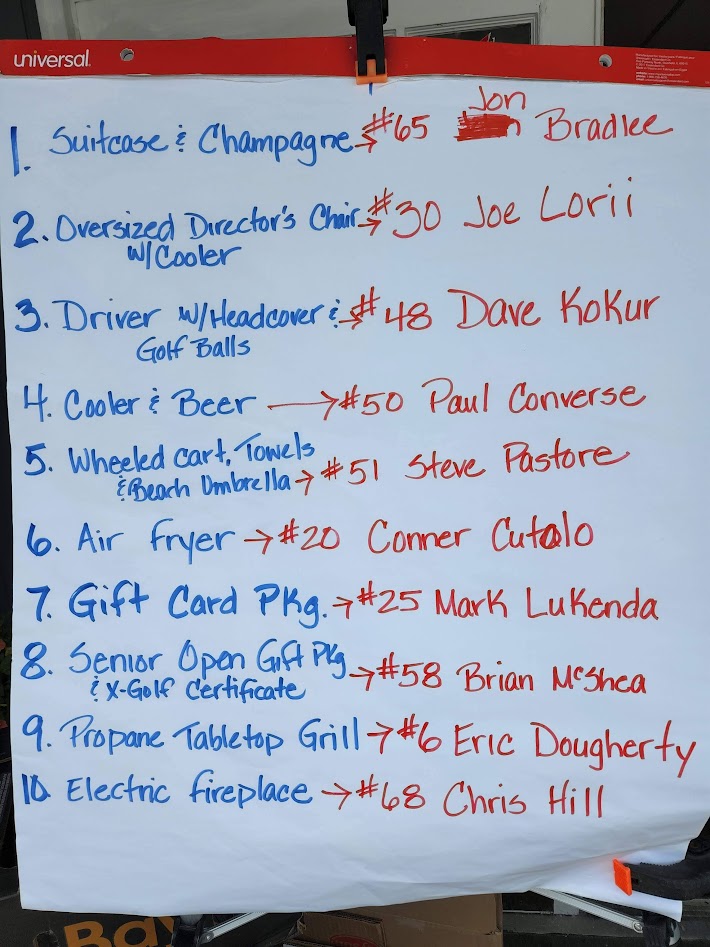 universal
Jon
1. Suitcase & Champagne → #65 Bradlee
2. Oversized Director's Chair → #30 Joe Lorii
W/Cooler
3. Driver W/Headcover & → #48 Dave Kokur
Golf Balls
4. Cooler & Beer → #50 Paul Converse
5. Wheeled Cart, Towels
& Beach Umbrella → #51 Steve Pastore
6. Air Fryer → #20 Conner Cutalo
7. Gift Card Pkg. → #25 Mark Lukenda
8. Senior Open Gift Pkg → #58 Brian McShea
& X-Golf Certificate
9. Propane Tabletop Grill → #6 Eric Dougherty
10. Electric Fireplace → #68 Chris Hill
Ba